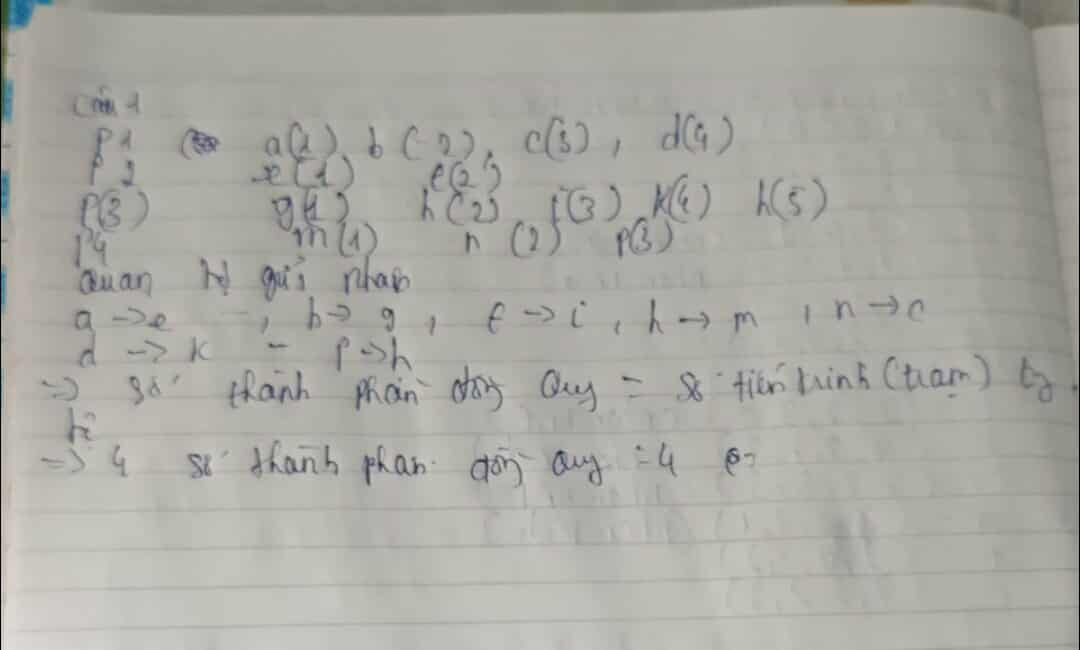 Câu 1
P1 a(1) b(2), c(3), d(4)
P2 e(1) f(2)
P(3) g(1) h(2) i(3) k(4) h(5)
P4 m(1) n (2) p(3)
Quan hệ gửi nhận
a → e , b → g , f → i , h → m , n → c
d → k - p → h
=> số thành phần đồng Quy = số tiến trình (trạm)
=> 4 số thành phần đồng Quy = 4